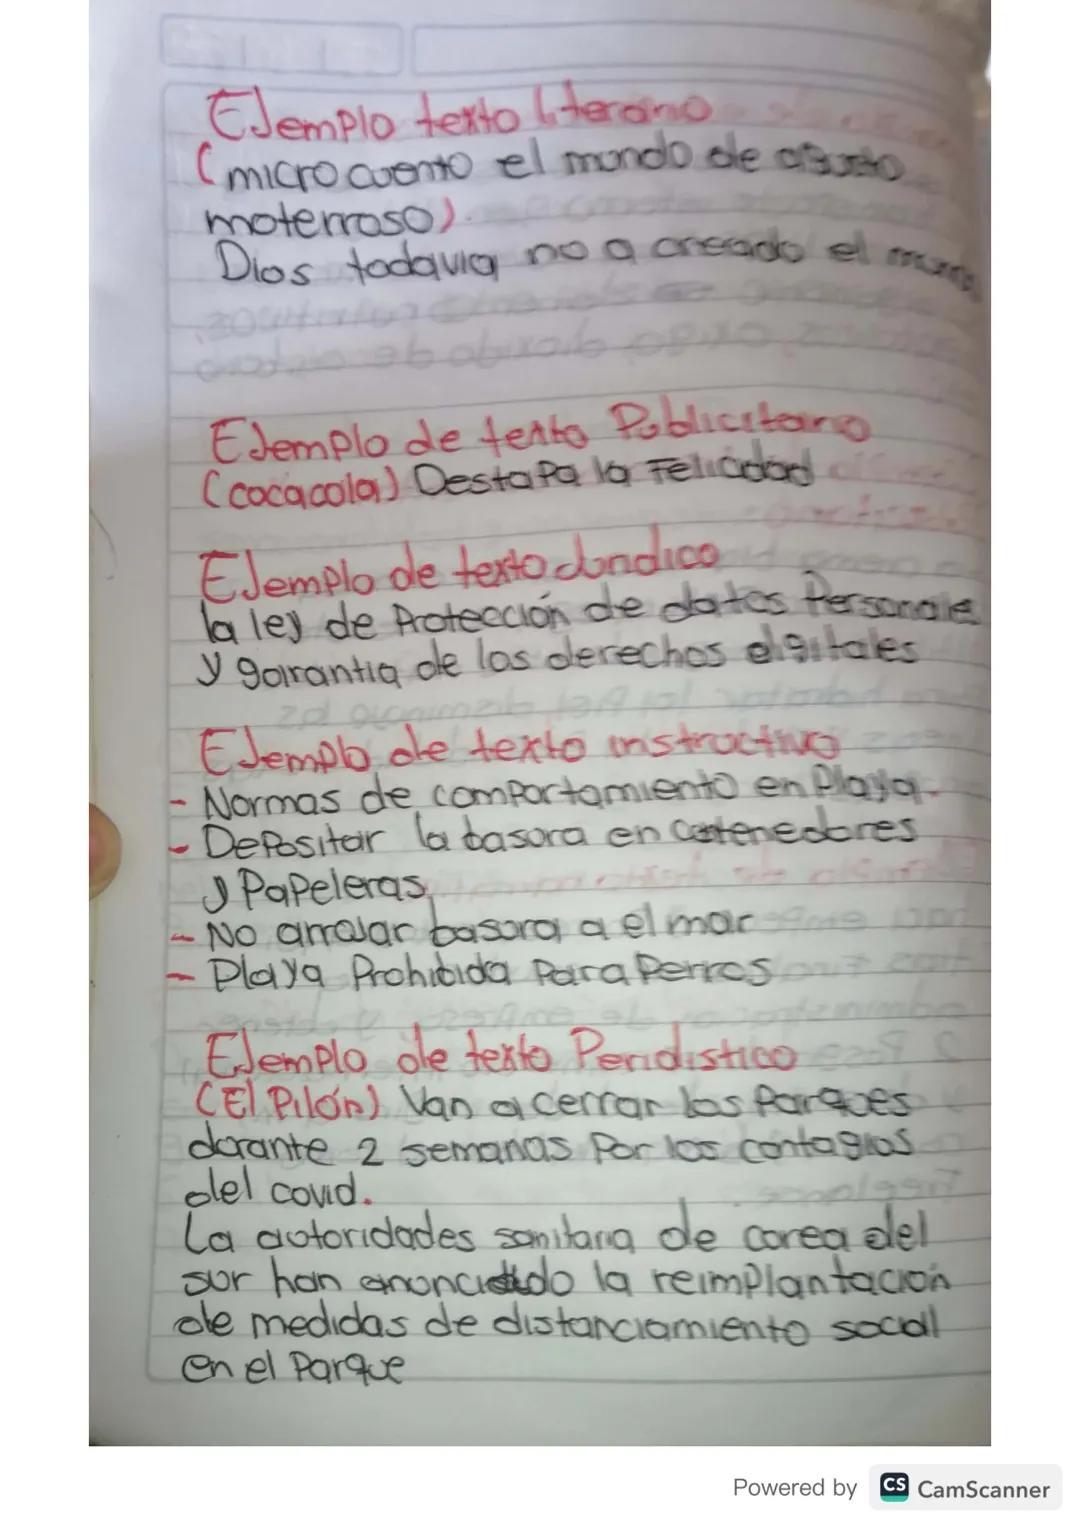 Ejemplo texto literario
(micro cuento el mundo de agusto
moterroso).
Dios todavia no a creado el mundo
Ejemplo de texto Publicitario
(cocacola) Destapa la Felicidad
Ejemplo de texto Juridico
la ley de Protección de datos Personale
y garantia de los derechos digitales
Ejemplo de texto instructivo
- Normas de comportamiento en Playa.
- Depositar la basura en contenedores
y Papeleras
- No arrojar basura a el mar
- Playa Prohibida Para Perros
Ejemplo de texto Peridistico
(El Pilón) Van a cerrar los Parques
durante 2 semanas Por los contagios
del covid.
La autoridades sanitaria de corea del
sur han anunciado la reimplantación
de medidas de distanciamiento social
en el Parque
Powered by CS CamScanner